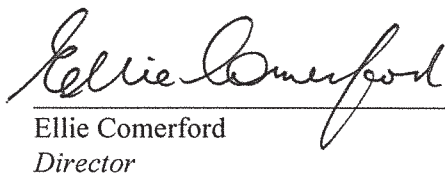 Ellie Comerford
Ellie Comerford
Director